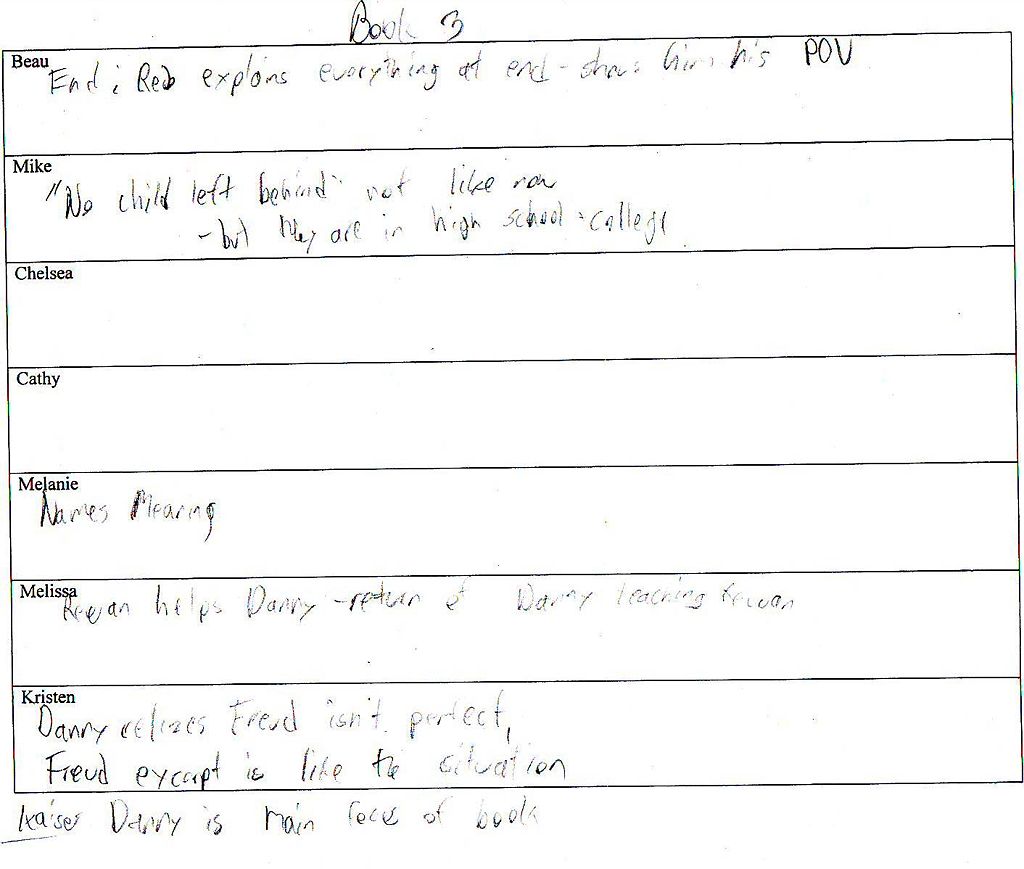 Book 3
Beau
End: Reb explains everything at end - shows him his POV
Mike
"No child left behind" not like now
- but they are in high school - college
Chelsea
Cathy
Melanie
Names Meaning
Melissa
Reuvan helps Danny - return of Danny teaching Reuvan
Kristen
Danny relizes Freud isn't perfect,
Freud excarpt is like the situation
Kaiser Danny is main focus of book